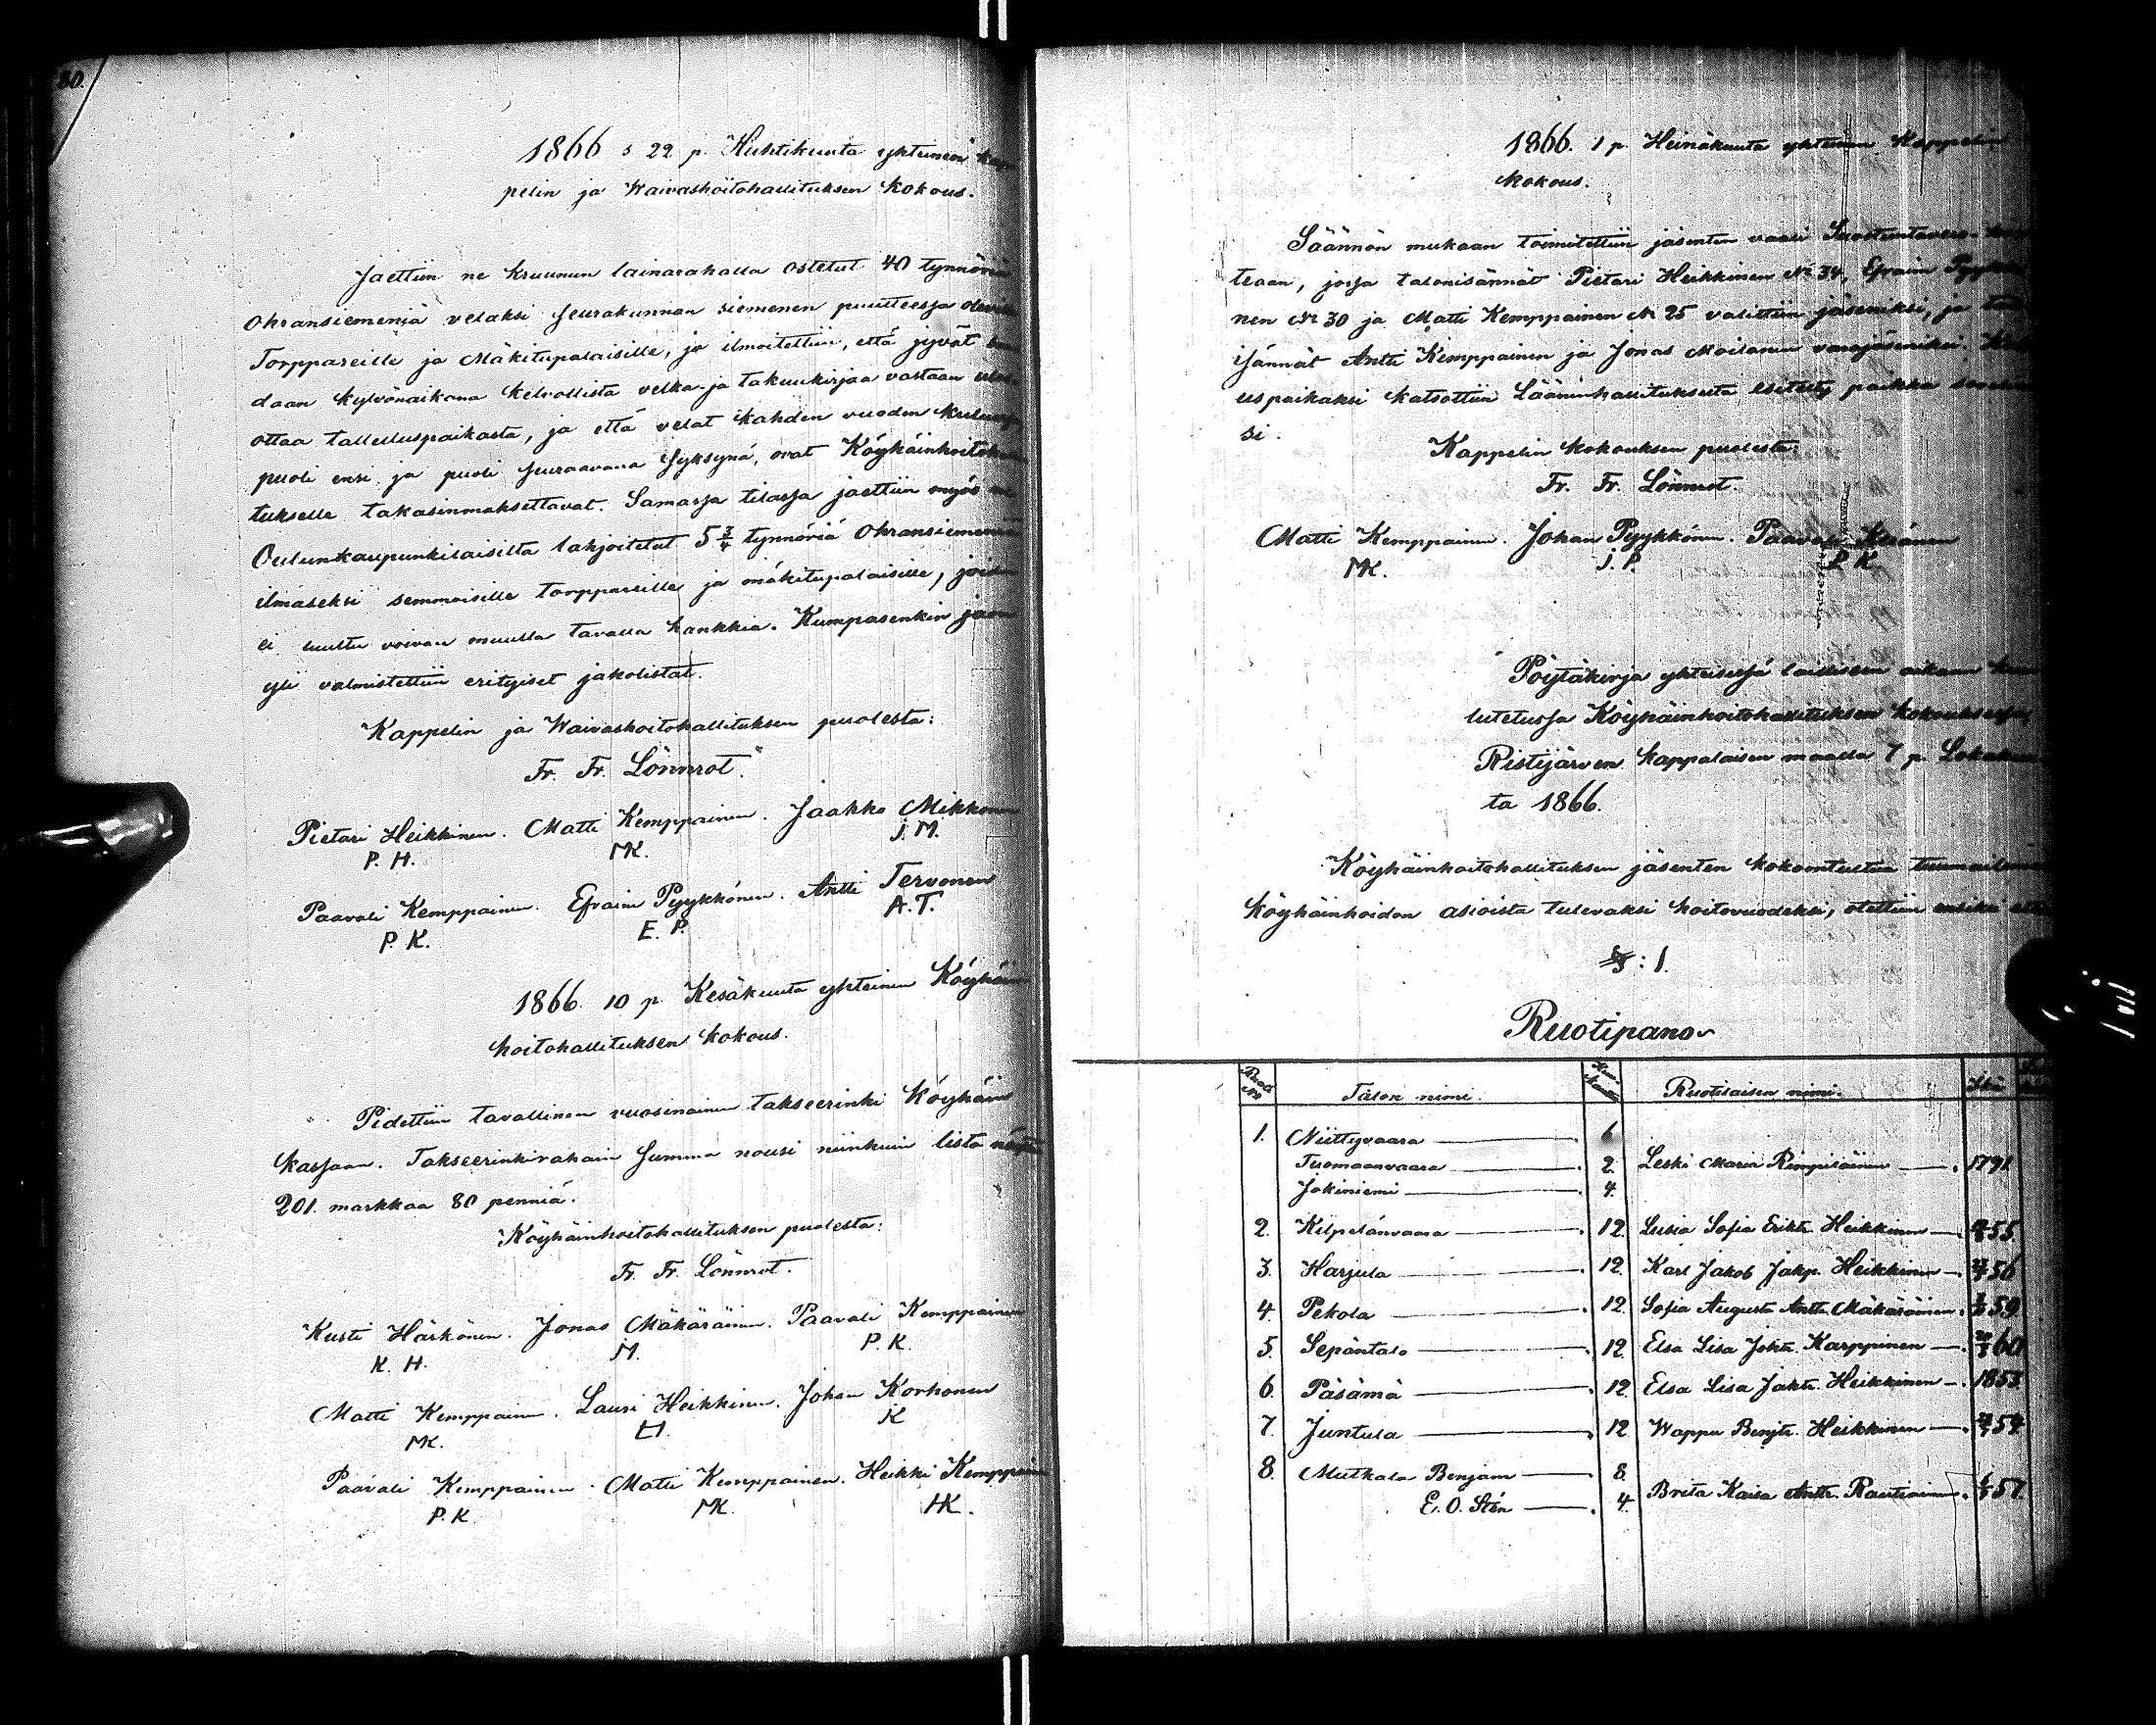 80.
1866 s 22 p. Huhtikuuta yhteinen kap
pelin ja Waivashoitohallituksen kokous.
Jaettiin ne kruunun lainarahalla ostetut 40 tynnöriä
Ohransiemeniä velaksi seurakunnan siemenen puutteessa oleville
Torppareille ja Mäkitupalaisille, ja ilmoitettiin, että jyvät
daan kylvönaikana kelvollista velka- ja takuukirjaa vastaan
ottaa talletuspaikasta, ja että velat kahden vuoden kuluessa,
puoli ensi ja puoli seuraavana syksynä, ovat Köyhäinhoito
tukselle takasinmaksettavat. Samassa tilassa jaettiin myös ne
Oulunkaupunkilaisilta lahjoitetut 5 3/4 tynnöriä Ohransiemeniä
ilmaseksi semmoisille torppareille ja mäkitupalaisille, joiden
ei luultu voivan muulla tavalla hankkia. Kumpasenkin jaon
yli valmistettiin erityiset jakolistat.
Kappelin ja Waivashoitohallituksen puolesta:
Fr. Fr. Lönnrot.
Pietari Heikkinen. Matti Kemppainen. Jaakko Mikkonen
P. H. MK. J. M.
Paavali Kemppainen. Efraim Pyykkönen. Antti Tervonen
P. K. E. P. A. T.
1866 10 p. Kesäkuuta yhteinen Köyhäin
hoitohallituksen kokous.
Pidettiin tavallinen vuosinainen takseerinki Köyhäin
kassaan. Takseerinkirahain summa nousi niinkuin lista näyttää
201 markkaa 80 penniä.
Köyhäinhoitohallituksen puolesta:
Fr. Fr. Lönnrot.
Kusti Härkönen. Jonas Mäkäräinen. Paavali Kemppainen
K. H. M. P. K.
Matti Kemppainen. Lauri Heikkinen. Johan Korhonen
MK. H. K
Paavali Kemppainen. Matti Kemppainen. Heikki Kemppainen
P. K. MK. HK.
1866. 1 p. Heinäkuuta yhteinen Kappelin
kokous.
Säännön mukaan toimitettiin jäsenten vaali Suostuntavero-
teaan, jossa talonisännät Pietari Heikkinen № 34, Efraim Pyykkö
nen № 30 ja Matti Kemppainen № 25 valittiin jäseniksi, ja
isännät Antti Kemppainen ja Jonas Moilanen varajäseniksi.
uspaikaksi katsottiin Lääninhallitukselta esitetty paikka
si.
Kappelin kokouksen puolesta:
Fr. Fr. Lönnrot.
Matti Kemppainen. Johan Pyykkönen. Paavali Keränen
MK. J. P. P. K.
Pöytäkirja yhteisessä lailliseen aikaan
lutetussa Köyhäinhoitohallituksen kokouksessa,
Ristijärven kappalaisen maalla 7 p. Lokakuu
ta 1866.
Köyhäinhoitohallituksen jäsenten kokoontultua
köyhäinhoidon asioista tulevaksi hoitovuodeksi, otettiin ensiksi
§: 1.
Ruotipano
Ruoti № Talon nimi. Ruotilaisen nimi. Ikä
1. Niittyvaara 6
Tuomaanvaara 2. Leski Maria Rimpiläinen 1791
Jokiniemi 4.
2. Kilpelänvaara 12. Lusia Sofia Erikt. Heikkinen 55.
3. Harjula 12. Karl Jakob Jakp. Heikkinen 56
4. Pekola 12. Sofia Augusta Antt. Mäkäräinen 59
5. Sepäntalo 12. Elsa Lisa Joht. Karppinen 60
6. Päsämä 12 Elsa Lisa Jakt. Heikkinen 1853
7. Juntula 12 Wappu Benjt. Heikkinen 54
8. Mutkala Benjam 8.
E. O. Stén 4. Brita Kaisa Antt. Rautiainen 57.